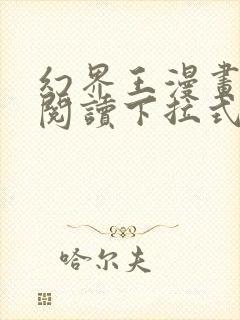 幻界王漫畫
閱讀下拉式
哈尔夫